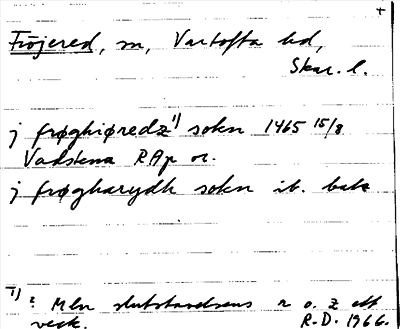 +
Fröjered, sn, Vartofta hd,
Skar. l.
j frøghiøredz 1) sokn 1465 15/8
Vadstena RAp or.
j frøgharydh sokn ib. baks
1) : Mln slutstavelsens r o. z ett
veck. R.D. 1966.